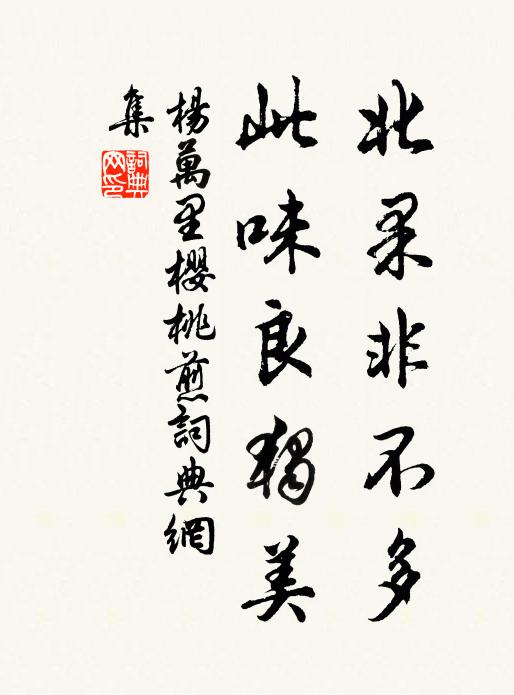 北果非不多
此味良獨美
楊萬里櫻桃煎詞典網
集
詞典网印